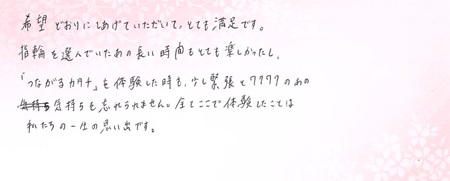 希望どおりにしあげていただいて、とても満足です。
指輪を選んでいたあの長い時間もとても楽しかったし、
「つながるカタチ」を体験した時も、少し緊張とワクワクのあの
気持ちを忘れられません。全てここで体験したことは
私たちの一生の思い出です。